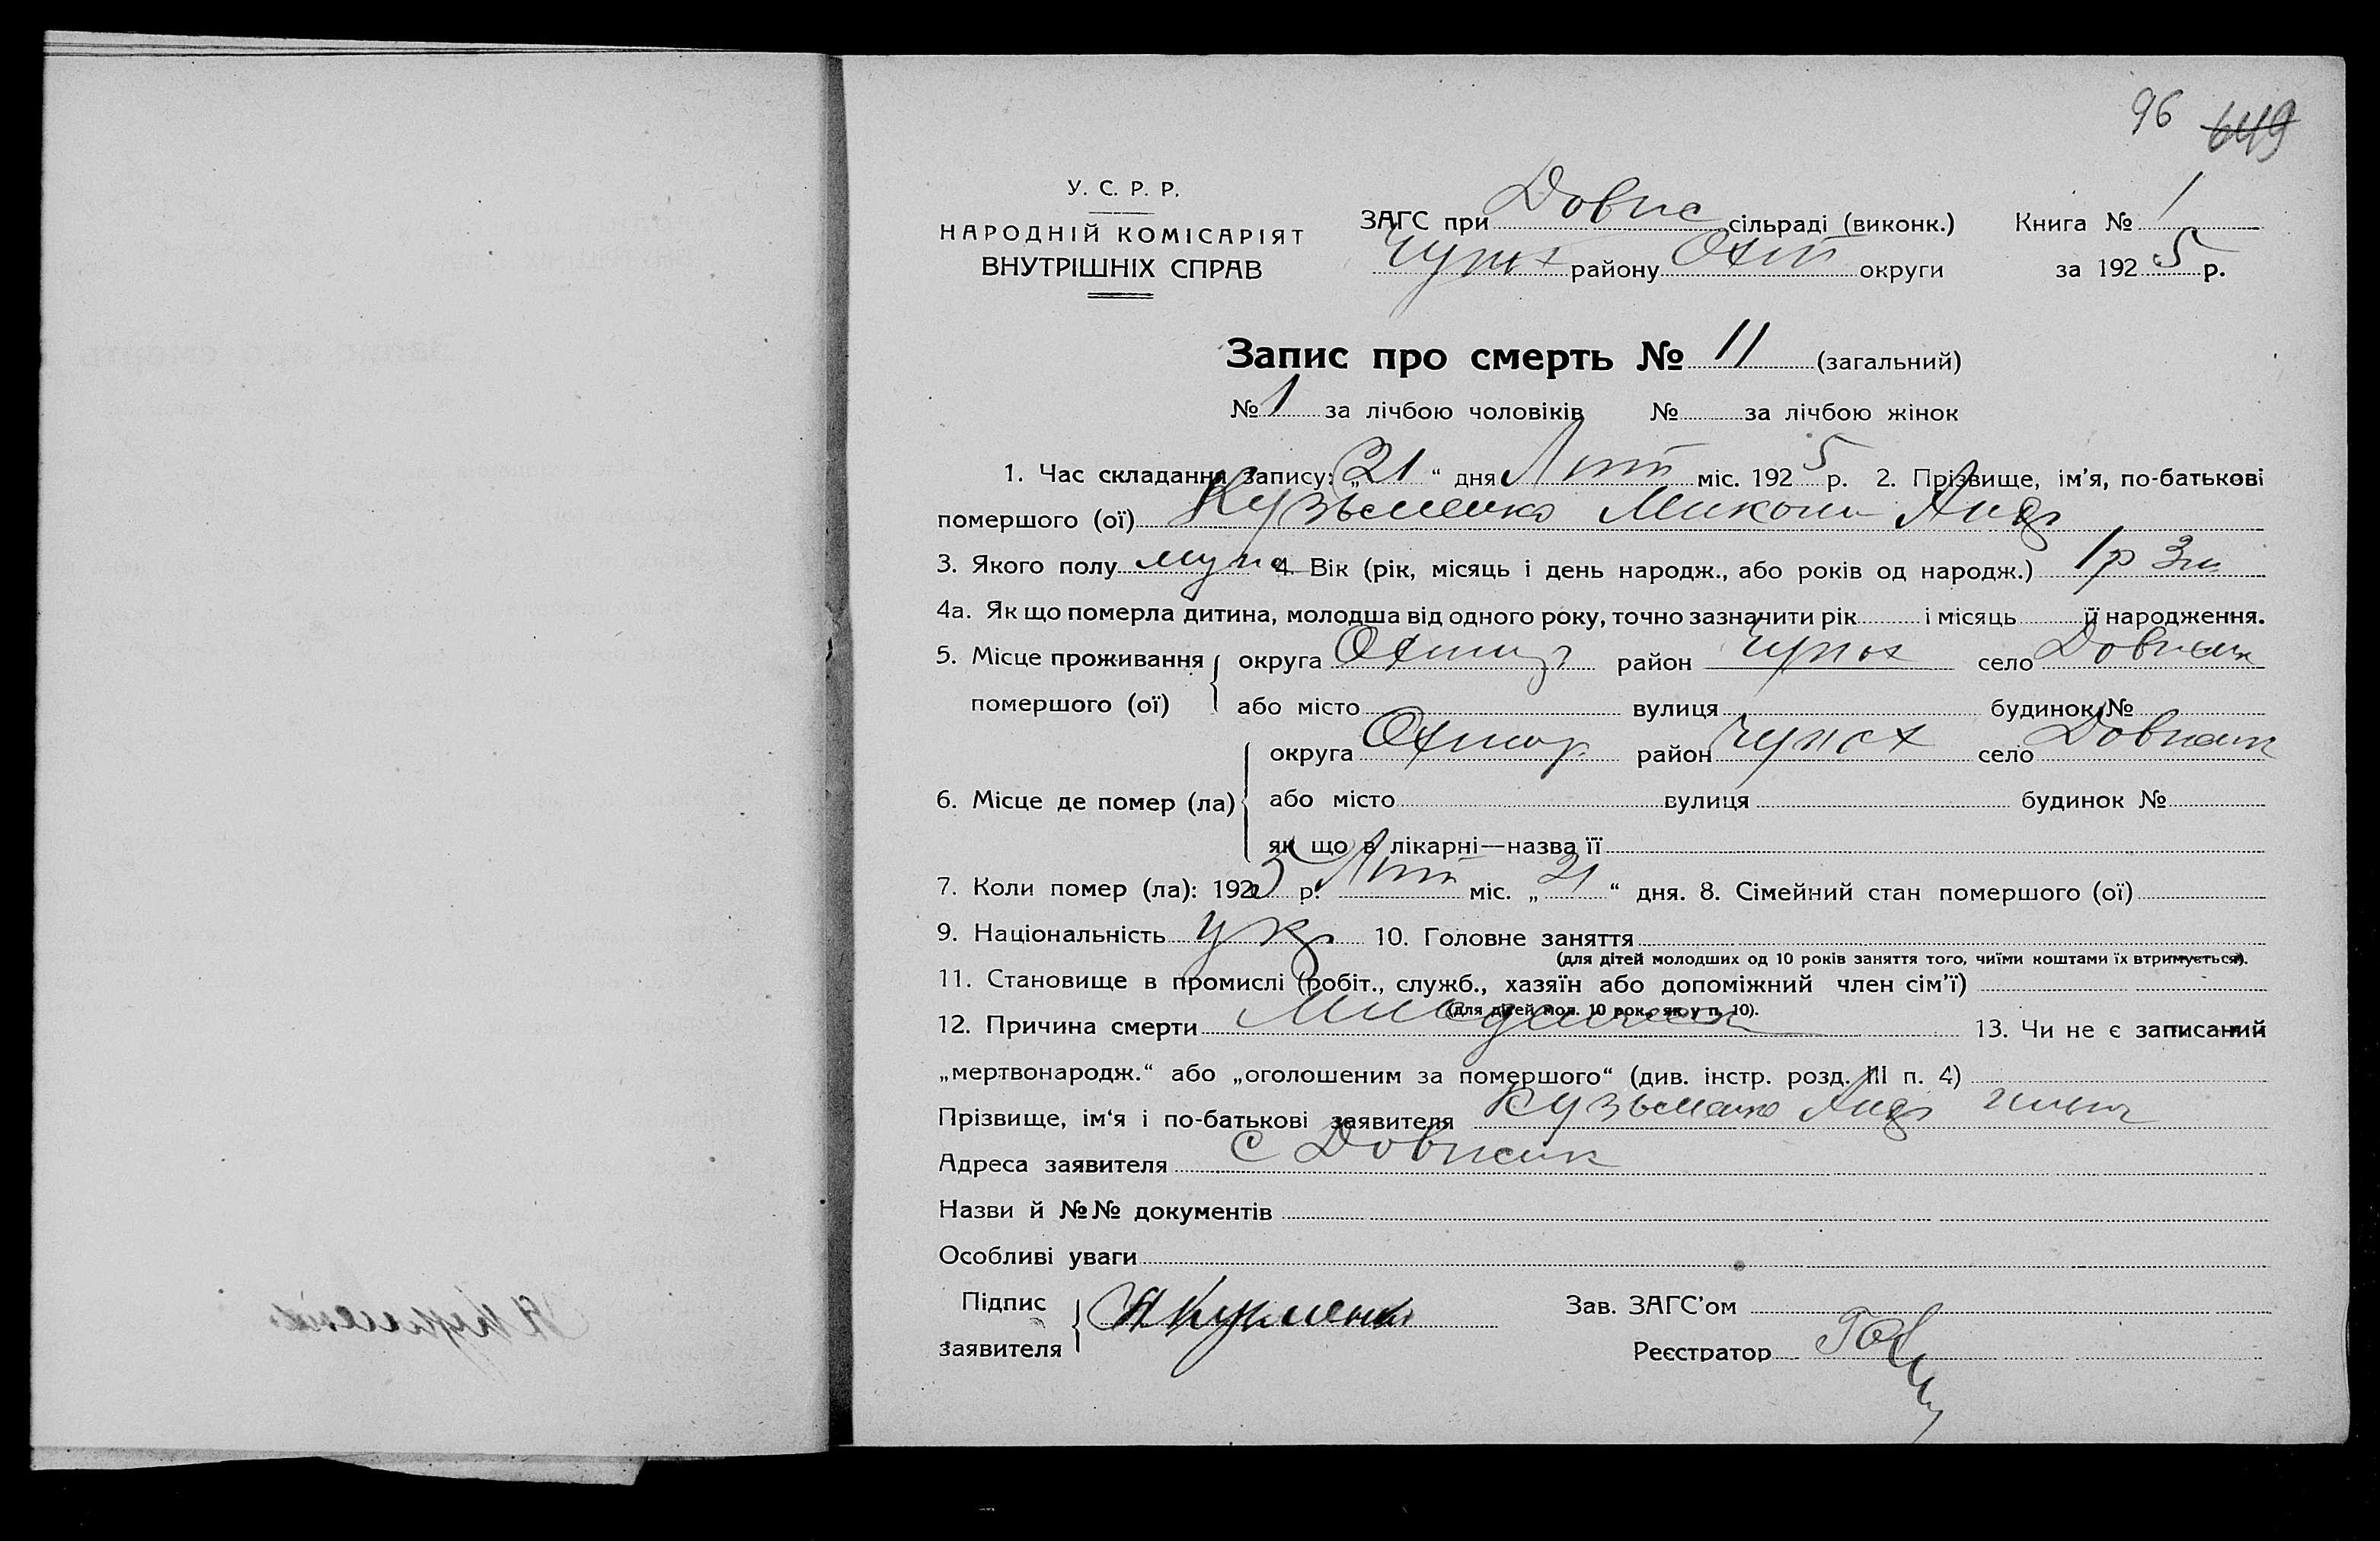 96 649
У. С. Р. Р.
НАРОДНІЙ КОМІСАРІЯТ
ВНУТРІШНІХ СПРАВ
ЗАГС при Довпс сільраді (виконк.) Книга № 1
району Охт округи за 1925 р.
Запис про смерть № 11 (загальний)
№ 1 за лічбою чоловіків № за лічбою жінок
1. Час складання запису: „21“ дня Лют міс. 1925 р. 2. Прізвище, ім'я, по-батькові
помершого (ої) Кузьменко Микола Андр
3. Якого полу муж 4. Вік (рік, місяць і день народж., або років од народж.) 1 р 3 м
4а. Як що померла дитина, молодша від одного року, точно зазначити рік і місяць її народження.
5. Місце проживання округа Охтир район Чупах село
помершого (ої) або місто вулиця будинок №
округа Охтир район Чупах село
6. Місце де помер (ла) або місто вулиця будинок №
як що в лікарні—назва її
7. Коли помер (ла): 1925 р. Лют міс. „21“ дня. 8. Сімейний стан помершого (ої)
9. Національність укр 10. Головне заняття
(для дітей молодших од 10 років заняття того, чиїми коштами їх втримується).
11. Становище в промислі (робіт., служб., хазяїн або допоміжний член сім'ї)
(для дітей мол. 10 рок., як у п. 10).
12. Причина смерти 13. Чи не є записаний
„мертвонародж.“ або „оголошеним за помершого“ (див. інстр. розд. III п. 4)
Прізвище, ім'я і по-батькові заявителя Кузьменко Андр
Адреса заявителя с
Назви й №№ документів
Особливі уваги
Підпис Зав. ЗАГС'ом
заявителя А Кузменко
Реєстратор